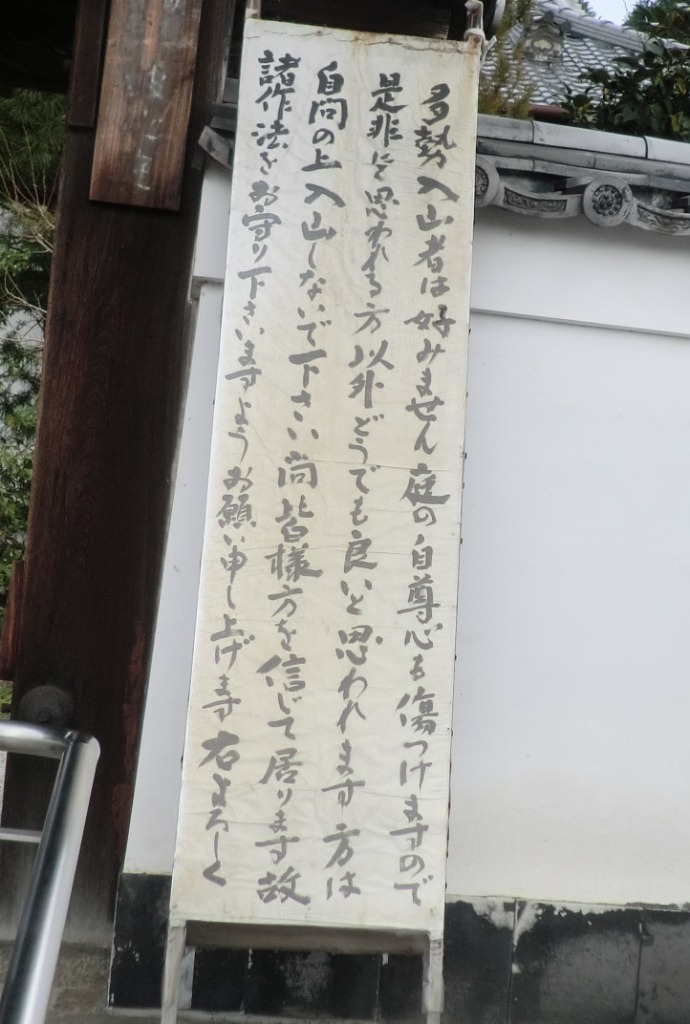 多勢入山者は好みません庭の自尊心も傷つけますので
是非にと思われる方以外どうでも良いと思われます方は
自問の上入山しないで下さい尚皆様方を信じて居ります故
諸作法をお守り下さいますようお願い申し上げます右よろしく